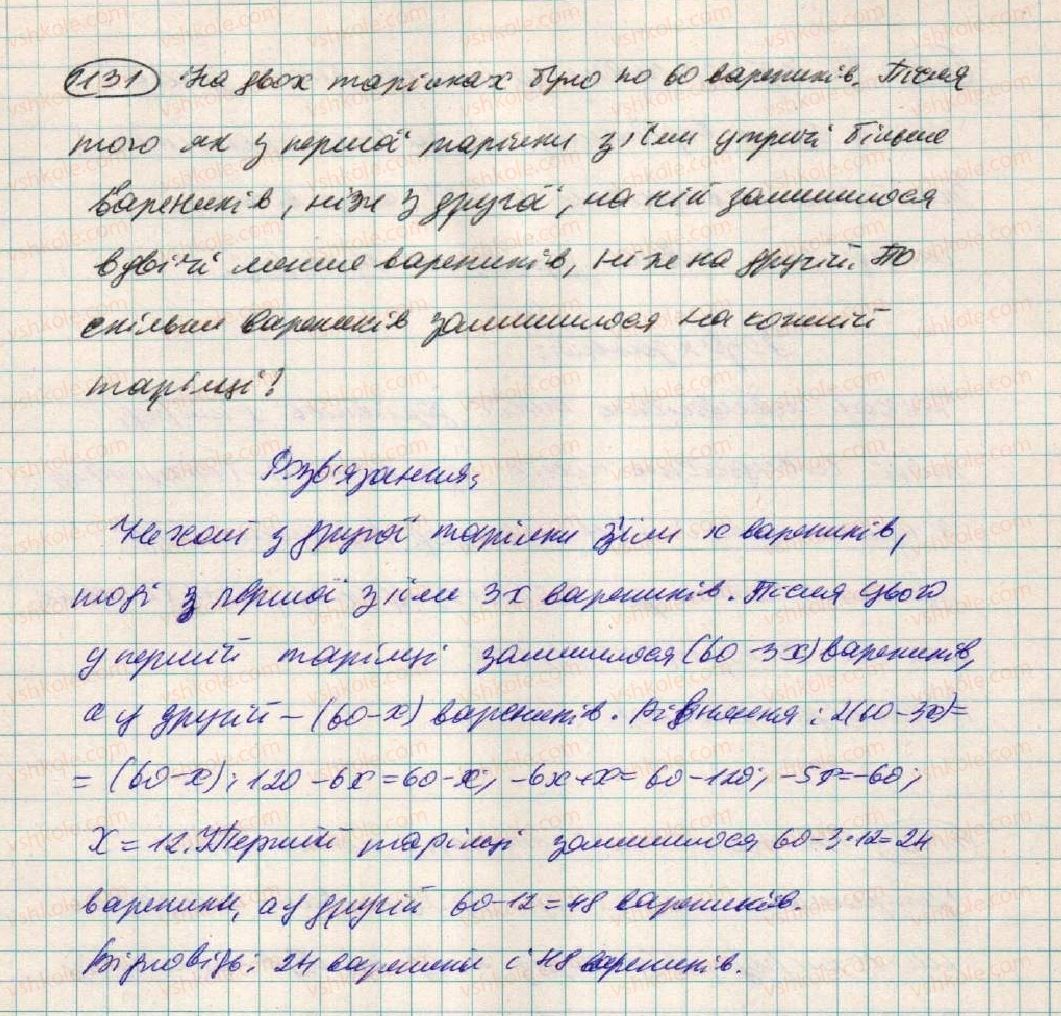 1131 На двох тарілках було по 60 вареників. Після
того як з першої тарілки з'їли утричі більше
вареників, ніж з другої, на ній залишилося
вдвічі менше вареників, ніж на другій. По
скільки вареників залишилося на кожній
тарілці?
Розв'язання:
Нехай з другої тарілки з'їли х вареників,
тоді з першої з'їли 3х вареників. Після цього
у першій тарілці залишилося (60-3х) вареників,
а у другій – (60-х) вареників. Рівняння: 2(60-3х)=
= (60-х); 120-6х=60-х; -6х+х=60-120; -5х=-60;
х=12. У першій тарілці залишилося 60-3·12=24
вареники, а у другій 60-12=48 вареників.
Відповідь: 24 вареники і 48 вареників.